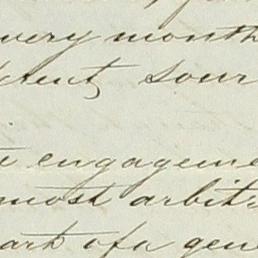 every month
sour
engageme
most arbit
art of a gen